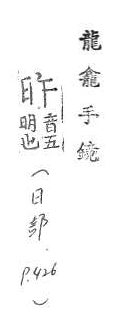 龍龕手鏡
旿音五明也(日部 P.426)